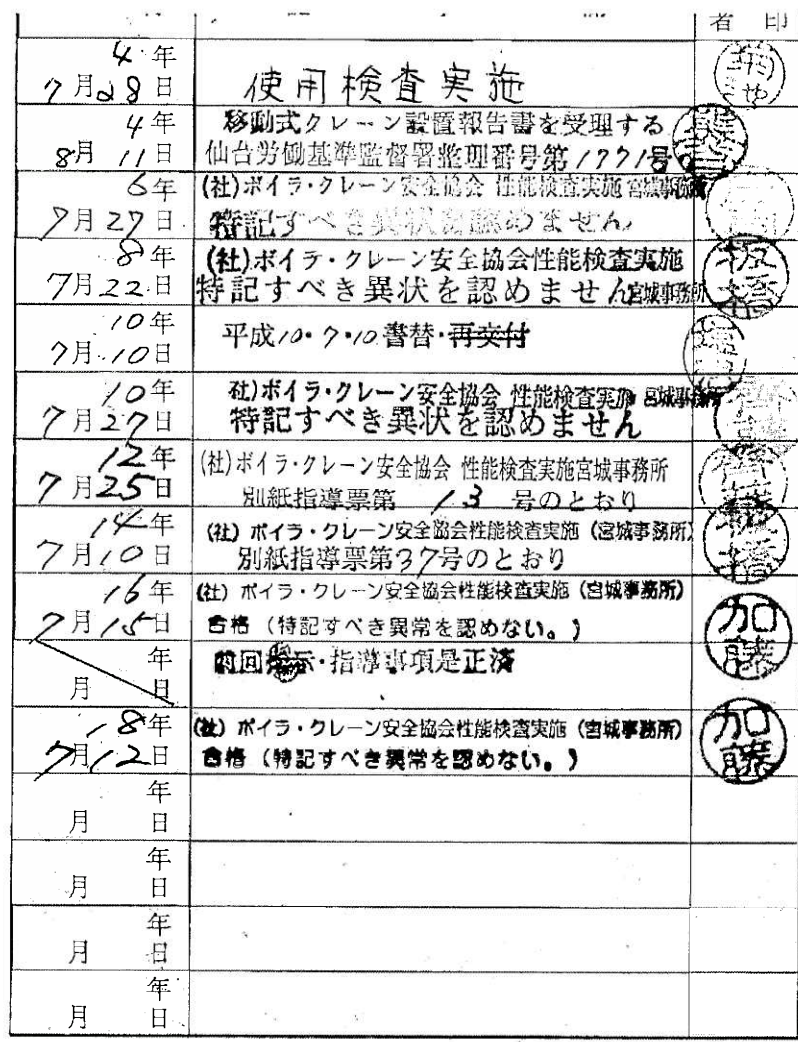 者 印
4年
7月28日
使用検査実施
4年
8月11日
移動式クレーン設置報告書を受理する
仙台労働基準監督署整理番号第1771号
6年
7月27日
(社)ボイラ・クレーン安全協会 性能検査実施 宮城事務所
特記すべき異状を認めません
8年
7月22日
(社)ボイラ・クレーン安全協会性能検査実施
特記すべき異状を認めません 宮城事務所
板橋
10年
7月10日
平成10・7・10書替・再交付
10年
7月27日
社)ボイラ・クレーン安全協会 性能検査実施 宮城事務所
特記すべき異状を認めません
12年
7月25日
(社)ボイラ・クレーン安全協会 性能検査実施宮城事務所
別紙指導票第 13 号のとおり
14年
7月10日
(社) ボイラ・クレーン安全協会性能検査実施 (宮城事務所)
別紙指導票第37号のとおり
板橋
16年
7月15日
(社) ボイラ・クレーン安全協会性能検査実施 (宮城事務所)
合格 (特記すべき異常を認めない。)
加藤
年
月 日
前回指示・指導事項是正済
18年
7月12日
(社) ボイラ・クレーン安全協会性能検査実施 (宮城事務所)
合格 (特記すべき異常を認めない。)
加藤
年
月 日
年
月 日
年
月 日
年
月 日